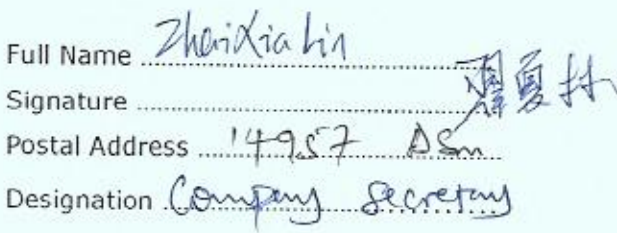 Full Name Zhai Xia Lin
Signature 翟夏林
Postal Address 14957 DSm
Designation Company Secretary